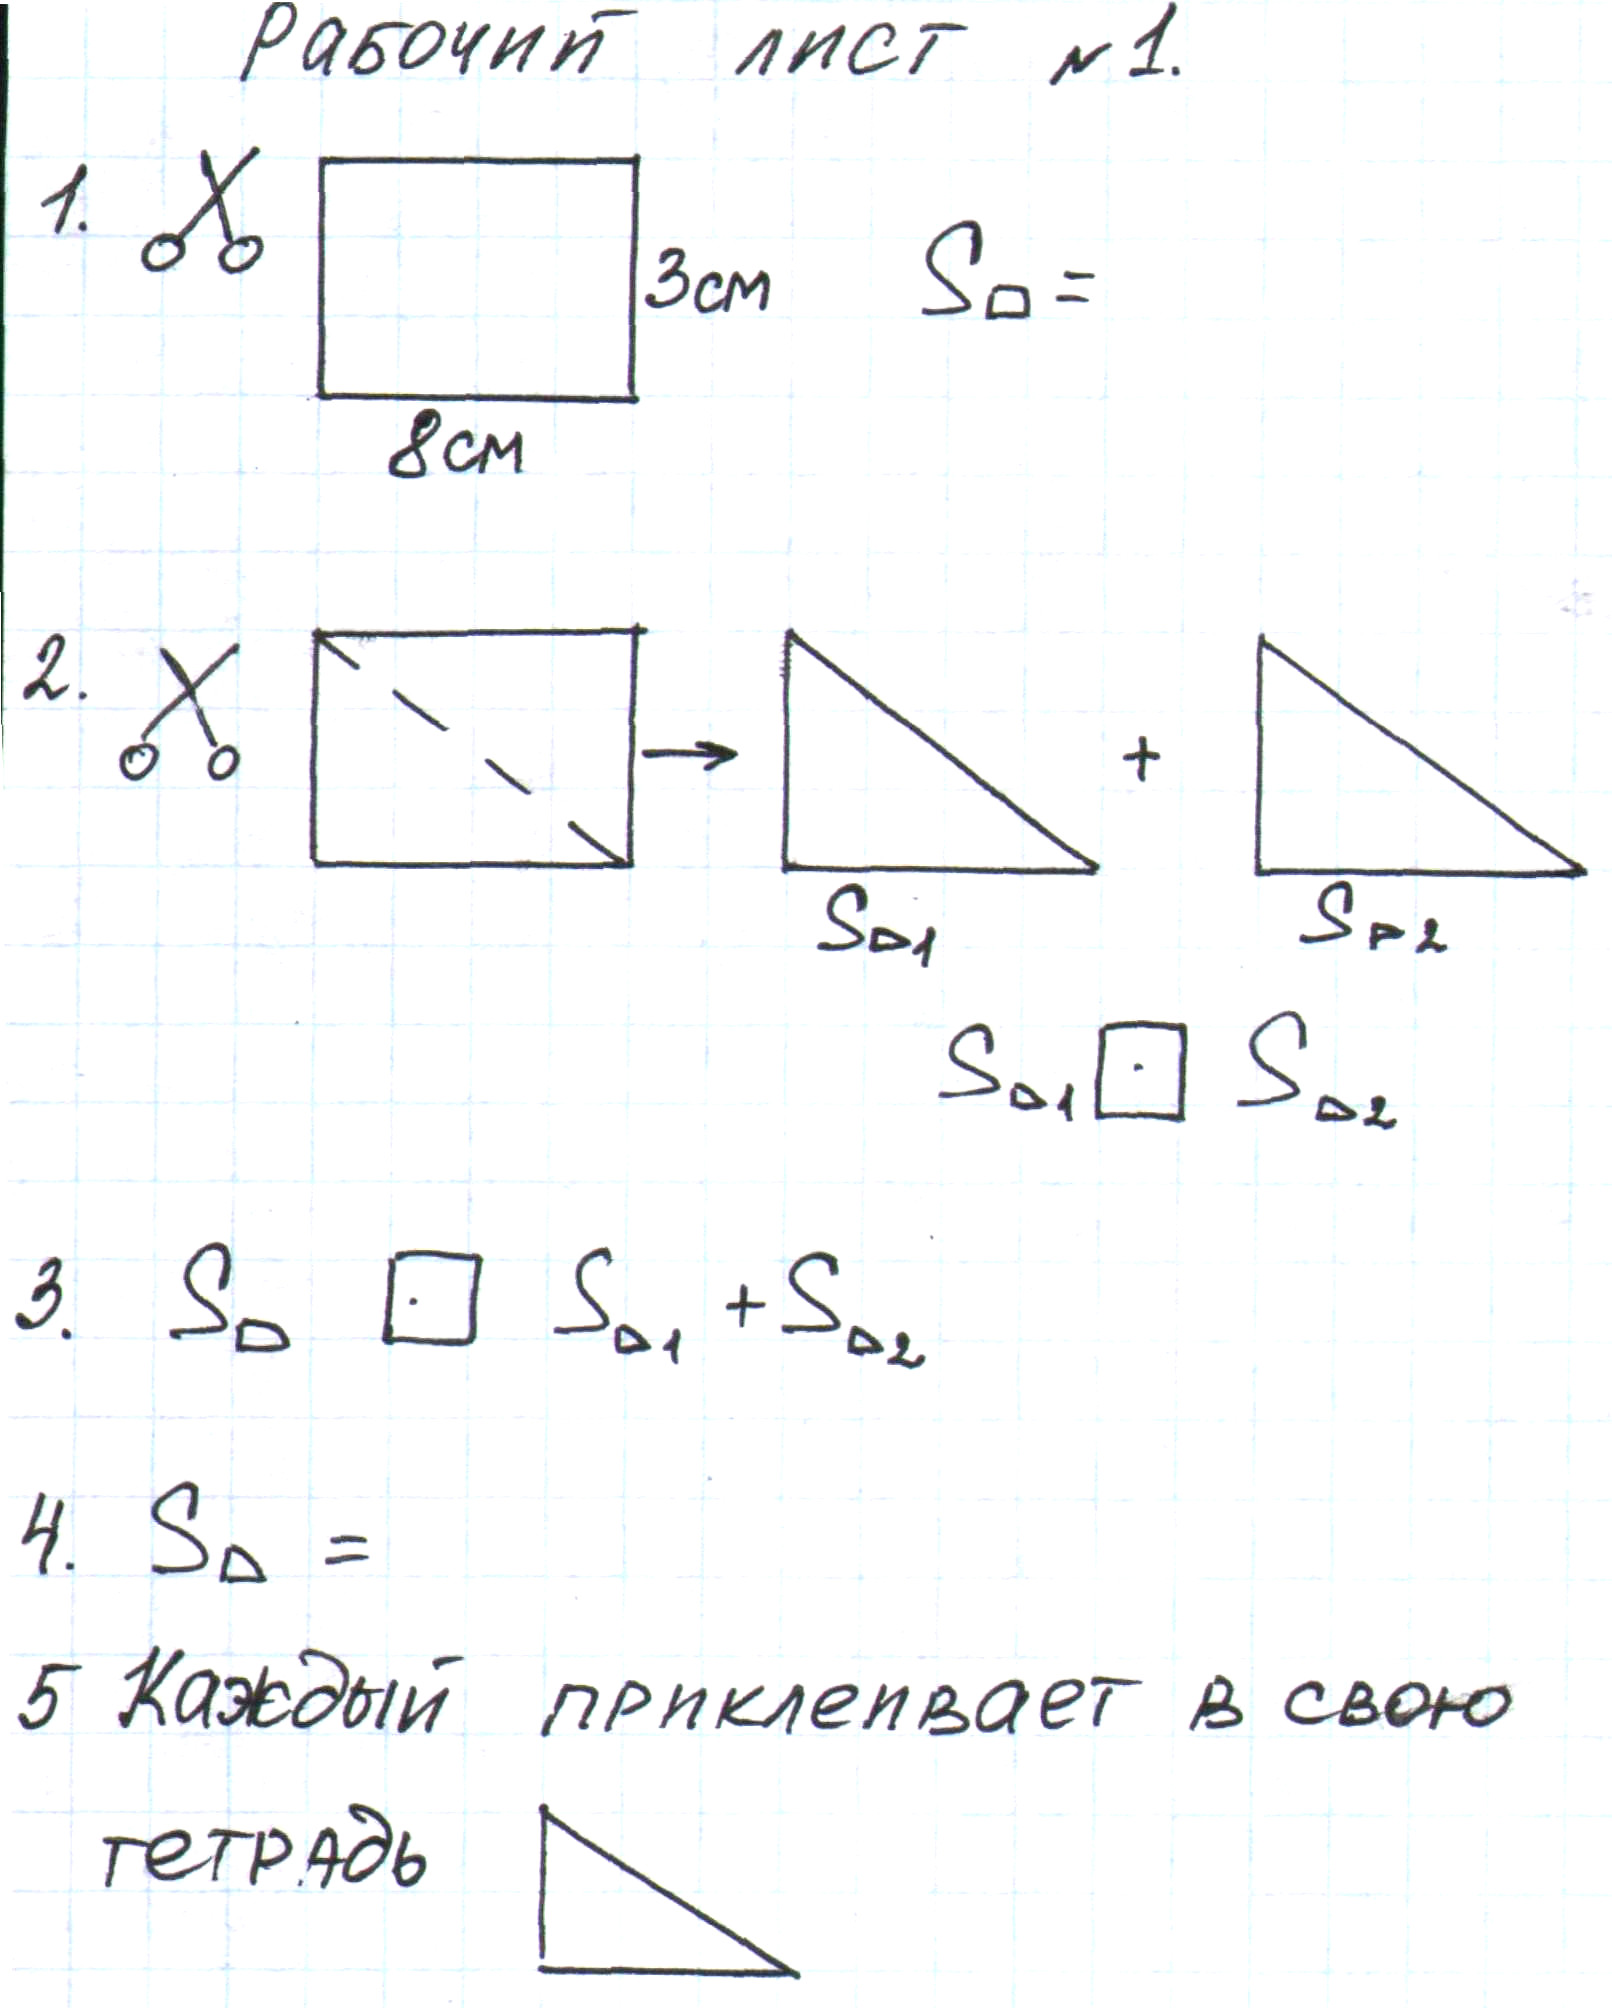 Рабочий лист №1.
1. 3см S□ =
8см
2. → +
S▷1 S▷2
S▷1 □ S▷2
3. S□ □ S▷1 + S▷2
4. S▷ =
5 Каждый приклеивает в свою
тетрадь